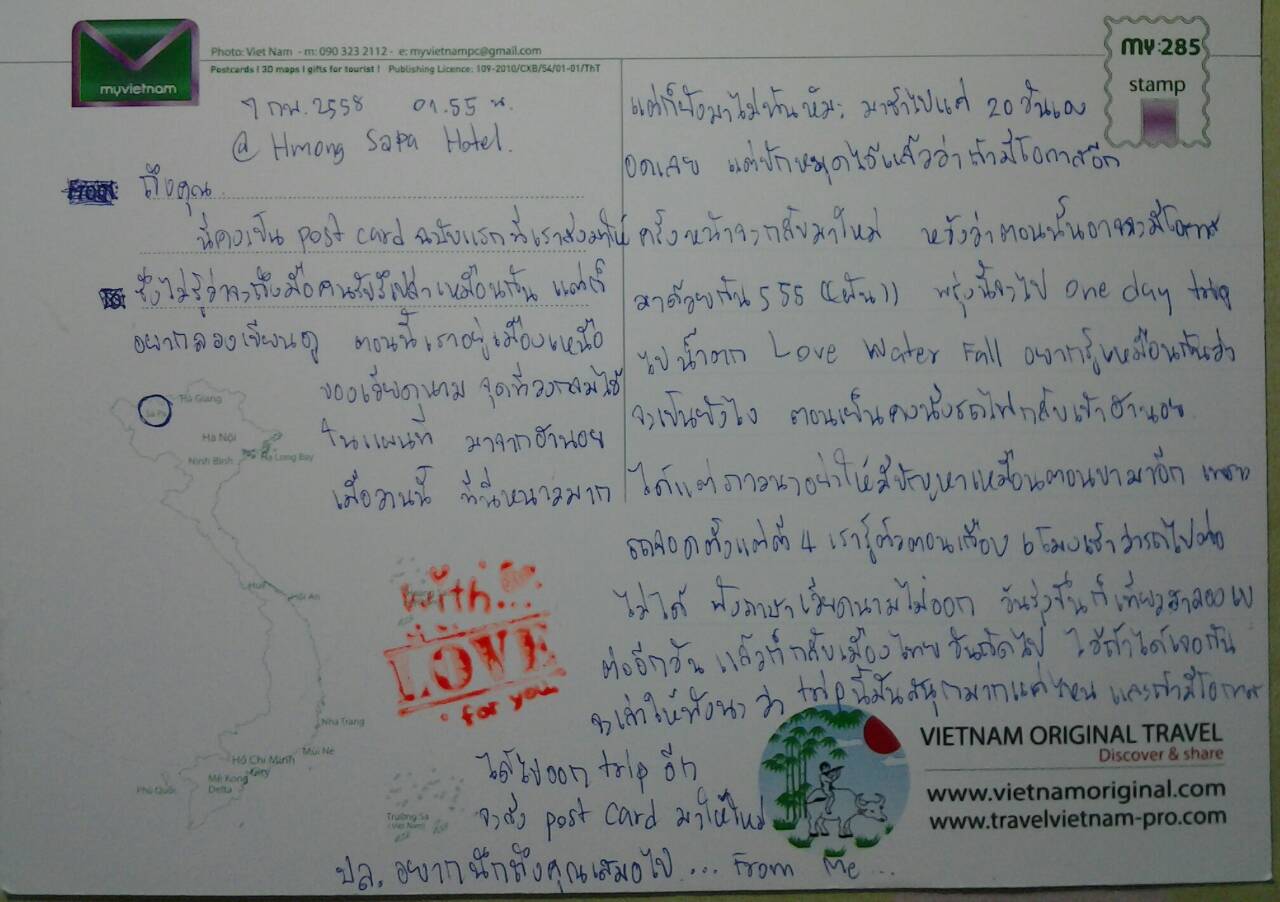 myvietnam
Photo: Viet Nam - m: 090 323 2112 - e: myvietnampc@gmail.com
Postcards I 3D maps I gifts for tourist I Publishing Licence: 109-2010/CXB/54/01-01/ThT
my:285
stamp
7 กพ. 2558 01.55 น.
@ Hmong Sapa Hotel.
From
ถึงคุณ
นี่คงเป็น post card ฉบับแรกที่เราส่งมาให้
ซึ่งไม่รู้ว่าจะถึงมือคนรับรึเปล่าเหมือนกัน แต่ก็
อยากลองเขียนดู ตอนนี้เราอยู่เมืองเหนือ
ของเวียดนาม จุดที่วงกลมไว้
ในแผนที่ มาจากฮานอย
เมื่อวานนี้ ที่นี่หนาวมาก
แต่ก็ยังมาไม่ทันหิมะ มาช้าไปแค่ 20 วันเอง
อดเลย แต่ปักหมุดไว้แล้วว่าถ้ามีโอกาสอีก
ครั้งหน้าจะกลับมาใหม่ หวังว่าตอนนั้นอาจจะมีโอกาส
มาด้วยกัน 555 ((ฝัน)) พรุ่งนี้จะไป one day trip
ไปน้ำตก Love Water Fall อยากรู้เหมือนกันว่า
จะเป็นยังไง ตอนเย็นคงนั่งรถไฟกลับเข้าฮานอย
ได้แต่ภาวนาอย่าให้มีปัญหาเหมือนตอนขามาอีก เพราะ
รถจอดตั้งแต่ตี 4 เรารู้ตัวตอนเกือบ 6 โมงเช้า ว่ารถไปต่อ
ไม่ได้ ฟังภาษาเวียดนามไม่ออก วันรุ่งขึ้นก็เที่ยวฮาลองเบ
ต่ออีกวัน แล้วก็กลับเมืองไทยวันถัดไป ไว้ถ้าได้เจอกัน
จะเล่าให้ฟังนะ ว่า trip นี้มันสนุกมากแค่ไหน และถ้ามีโอกาส
ได้ไปออก trip อีก
จะส่ง post card มาให้ใหม่
ปล. อยากนึกถึงคุณเสมอไป ... From Me ...
Sa Pa
Hà Giang
Hà Nội
Ninh Bình
Hạ Long Bay
Huế
Hội An
Nha Trang
Mũi Né
Hồ Chí Minh
City
Mê Kong
Delta
Phú Quốc
Trường Sa
(Việt Nam)
with...
LOVE
for you
VIETNAM ORIGINAL TRAVEL
Discover & share
www.vietnamoriginal.com
www.travelvietnam-pro.com